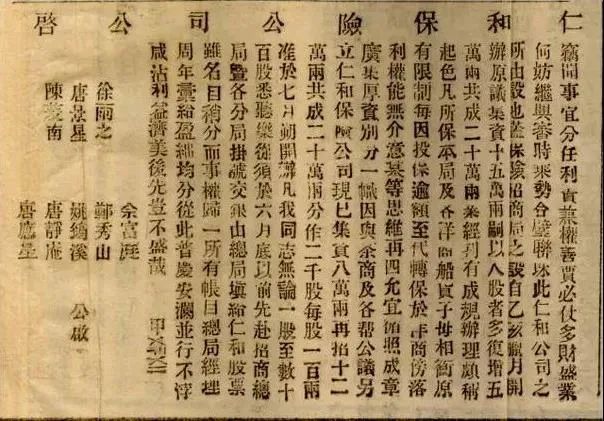 仁和保險公司公啓
竊聞事宜分任利貴兼權善賈必仗多財盛業
何妨繼與審時乘勢合璧聯珠此仁和公司之
所由設也蓋保險招商局之設自乙亥臘月開
辦原議集資十五萬兩嗣以入股者多復增五
萬兩共成二十萬兩業經刊有成規辦理頗稱
起色凡所保本局及各洋商船貨子母相衡原
有限制每因投保逾額至代轉保於洋商傍落
利權能無介意某等思維再四允宜循照成章
廣集厚資別分一幟因與茶商及各幫公議另
立仁和保險公司現已集資八萬兩再招十二
萬兩共成二十萬兩分作二千股每股一百兩
准於七月朔開辦凡我同志無論一股至數十
百股悉聽樂從須於六月底以前先赴招商總
局暨各分局掛號交銀由總局填給仁和股票
雖名目稍分而事權歸一所有帳目總局經理
周年彙給盈絀均分從此普慶安瀾並行不悖
咸沾利益濟美後先豈不盛哉
余富庭
徐雨之 鄭秀山
唐景星 姚筠溪 公啟
陳菱南 唐靜庵
唐應星